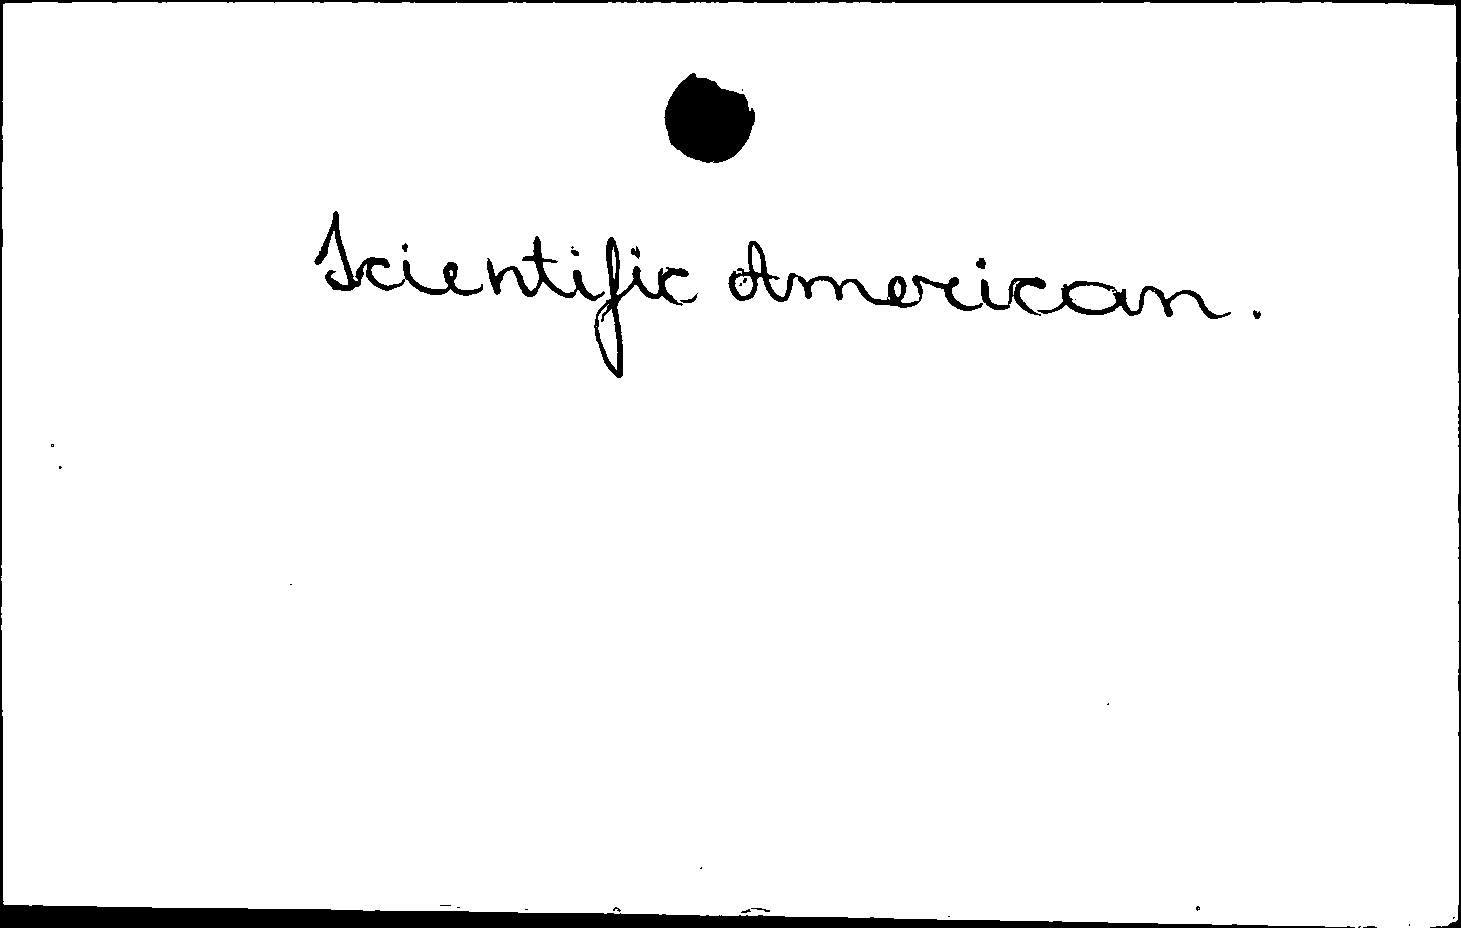 Scientific American.